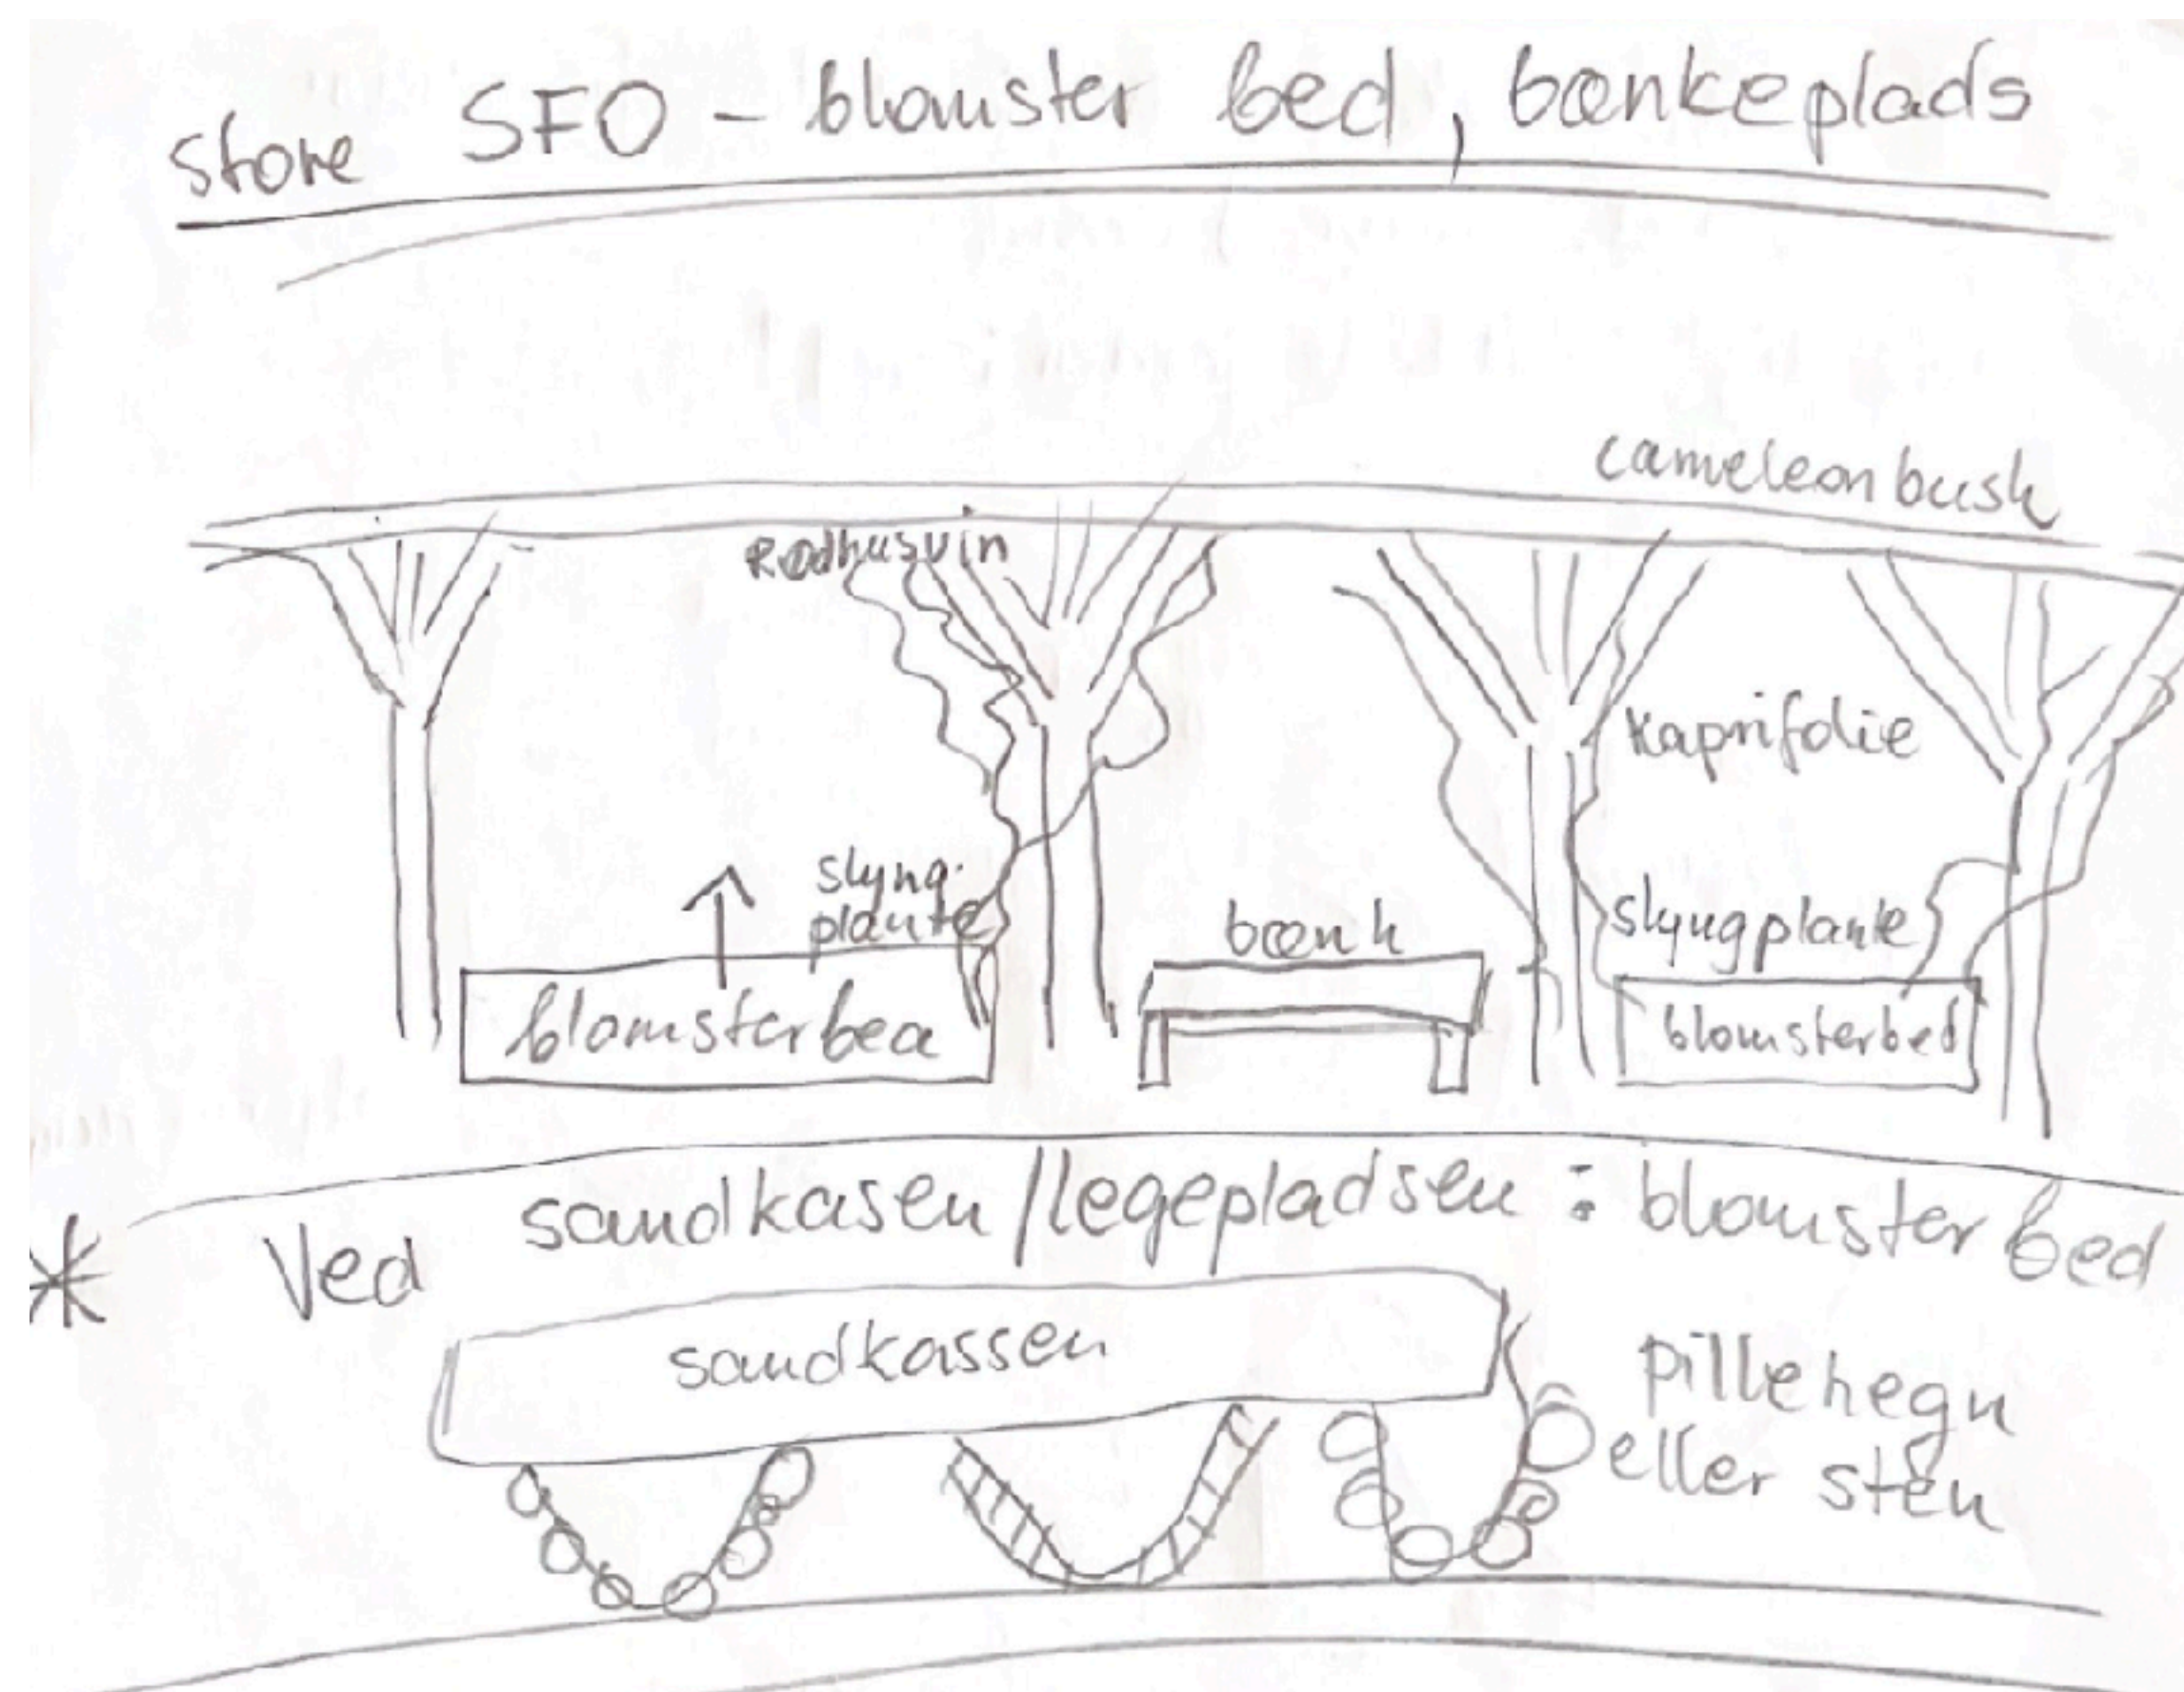 store SFO - blomster bed, bænkeplads
cameleonbush
Rådhusvin
Kaprifolie
slyng.
plante
bænk
slyngplante
blomsterbed
blomsterbed
* Ved sandkasen/legepladsen : blomster bed
sandkassen
pillehegn
eller sten